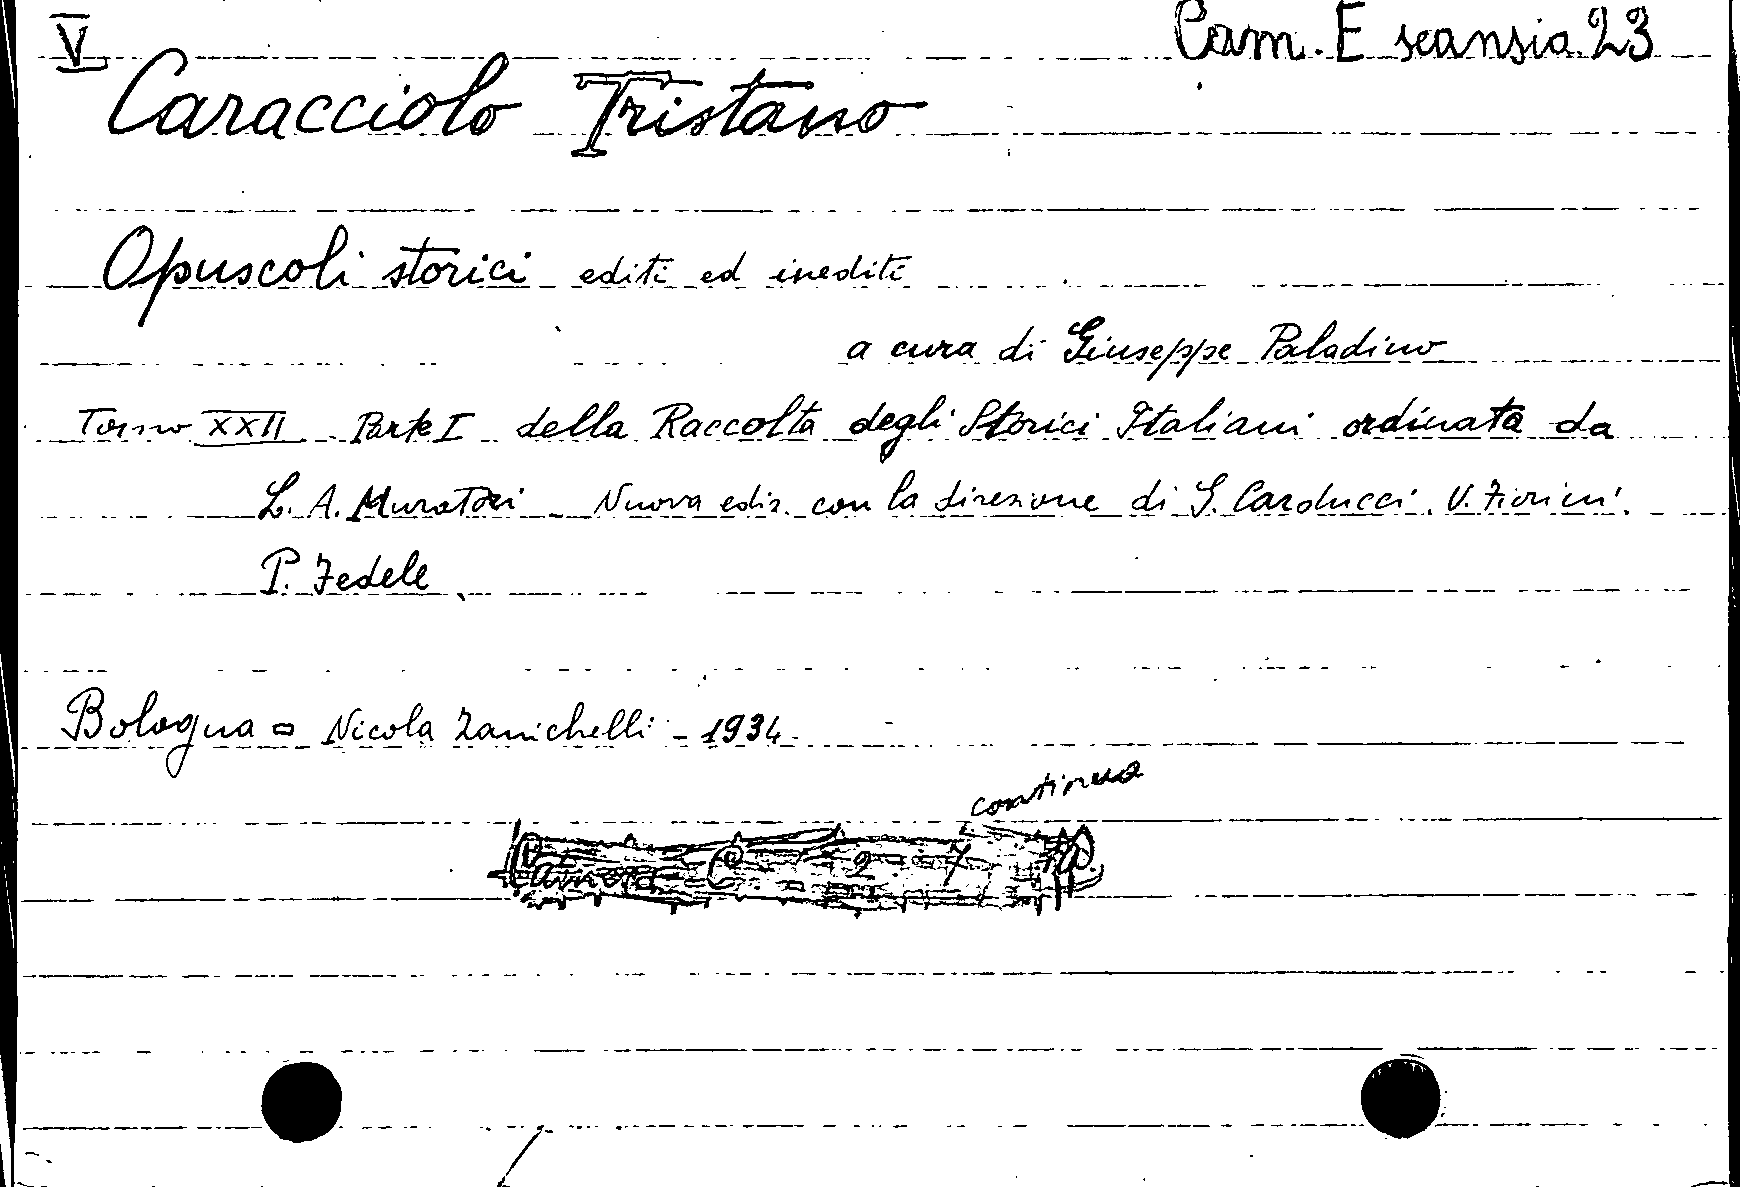 V Cam. E scansia 23
Caracciolo Tristano
Opuscoli storici editi ed inediti
a cura di Giuseppe Paladino
Tomo XXII Parte I della Raccolta degli Storici Italiani ordinata da
L. A. Muratori - Nuova ediz. con la direzione di G. Carducci. V. Fiorini.
P. Fedele
Bologna = Nicola Zanichelli - 1934
continua